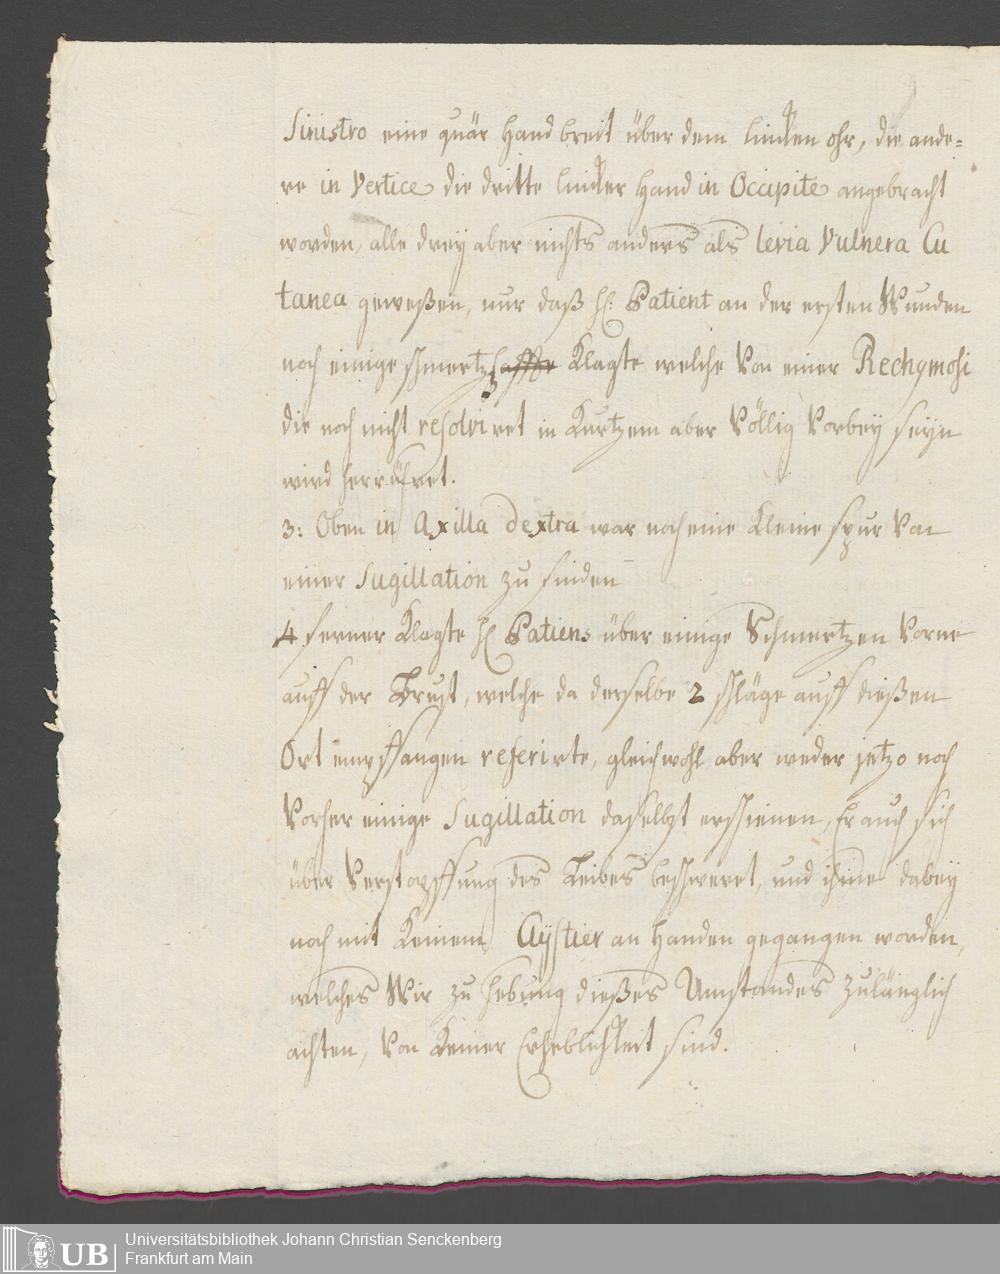 Sinistro eine quär Hand breit über dem lincken ohr, die ande=
re in Vertice die dritte lincker Hand in Occipite angebracht
worden, alle drey aber nichts anders als levia Vulnera Cu
tanea geweßen, nur daß H: Patient an der ersten Wunden
noch einige schmertz Klagte welche Von einer Rechymosi
die noch nicht resolviret in Kurtzem aber Völlig Vorbey seyn
wird herrühret.
3: Oben in Axilla dextra war noch eine Kleine spur Von
einer Sugillation zu finden
4 ferner Klagte H Patiens über einige Schmertzen Vorne
auff der Brust, welche da derselbe 2 schläge auff dießen
Ort empffangen referirte, gleichwohl aber weder jetzo noch
Vorher einige Sugillation daselbst erschienen, Er auch sich
über Verstopffung des Leibes beschweret, und ihme dabey
noch mit Keinem Clystier an Handen gegangen worden,
welches Wir zu hebung dießes Umstandes zulänglich
achten, Von Keiner Erheblichkeit sind.
UB
Universitätsbibliothek Johann Christian Senckenberg
Frankfurt am Main